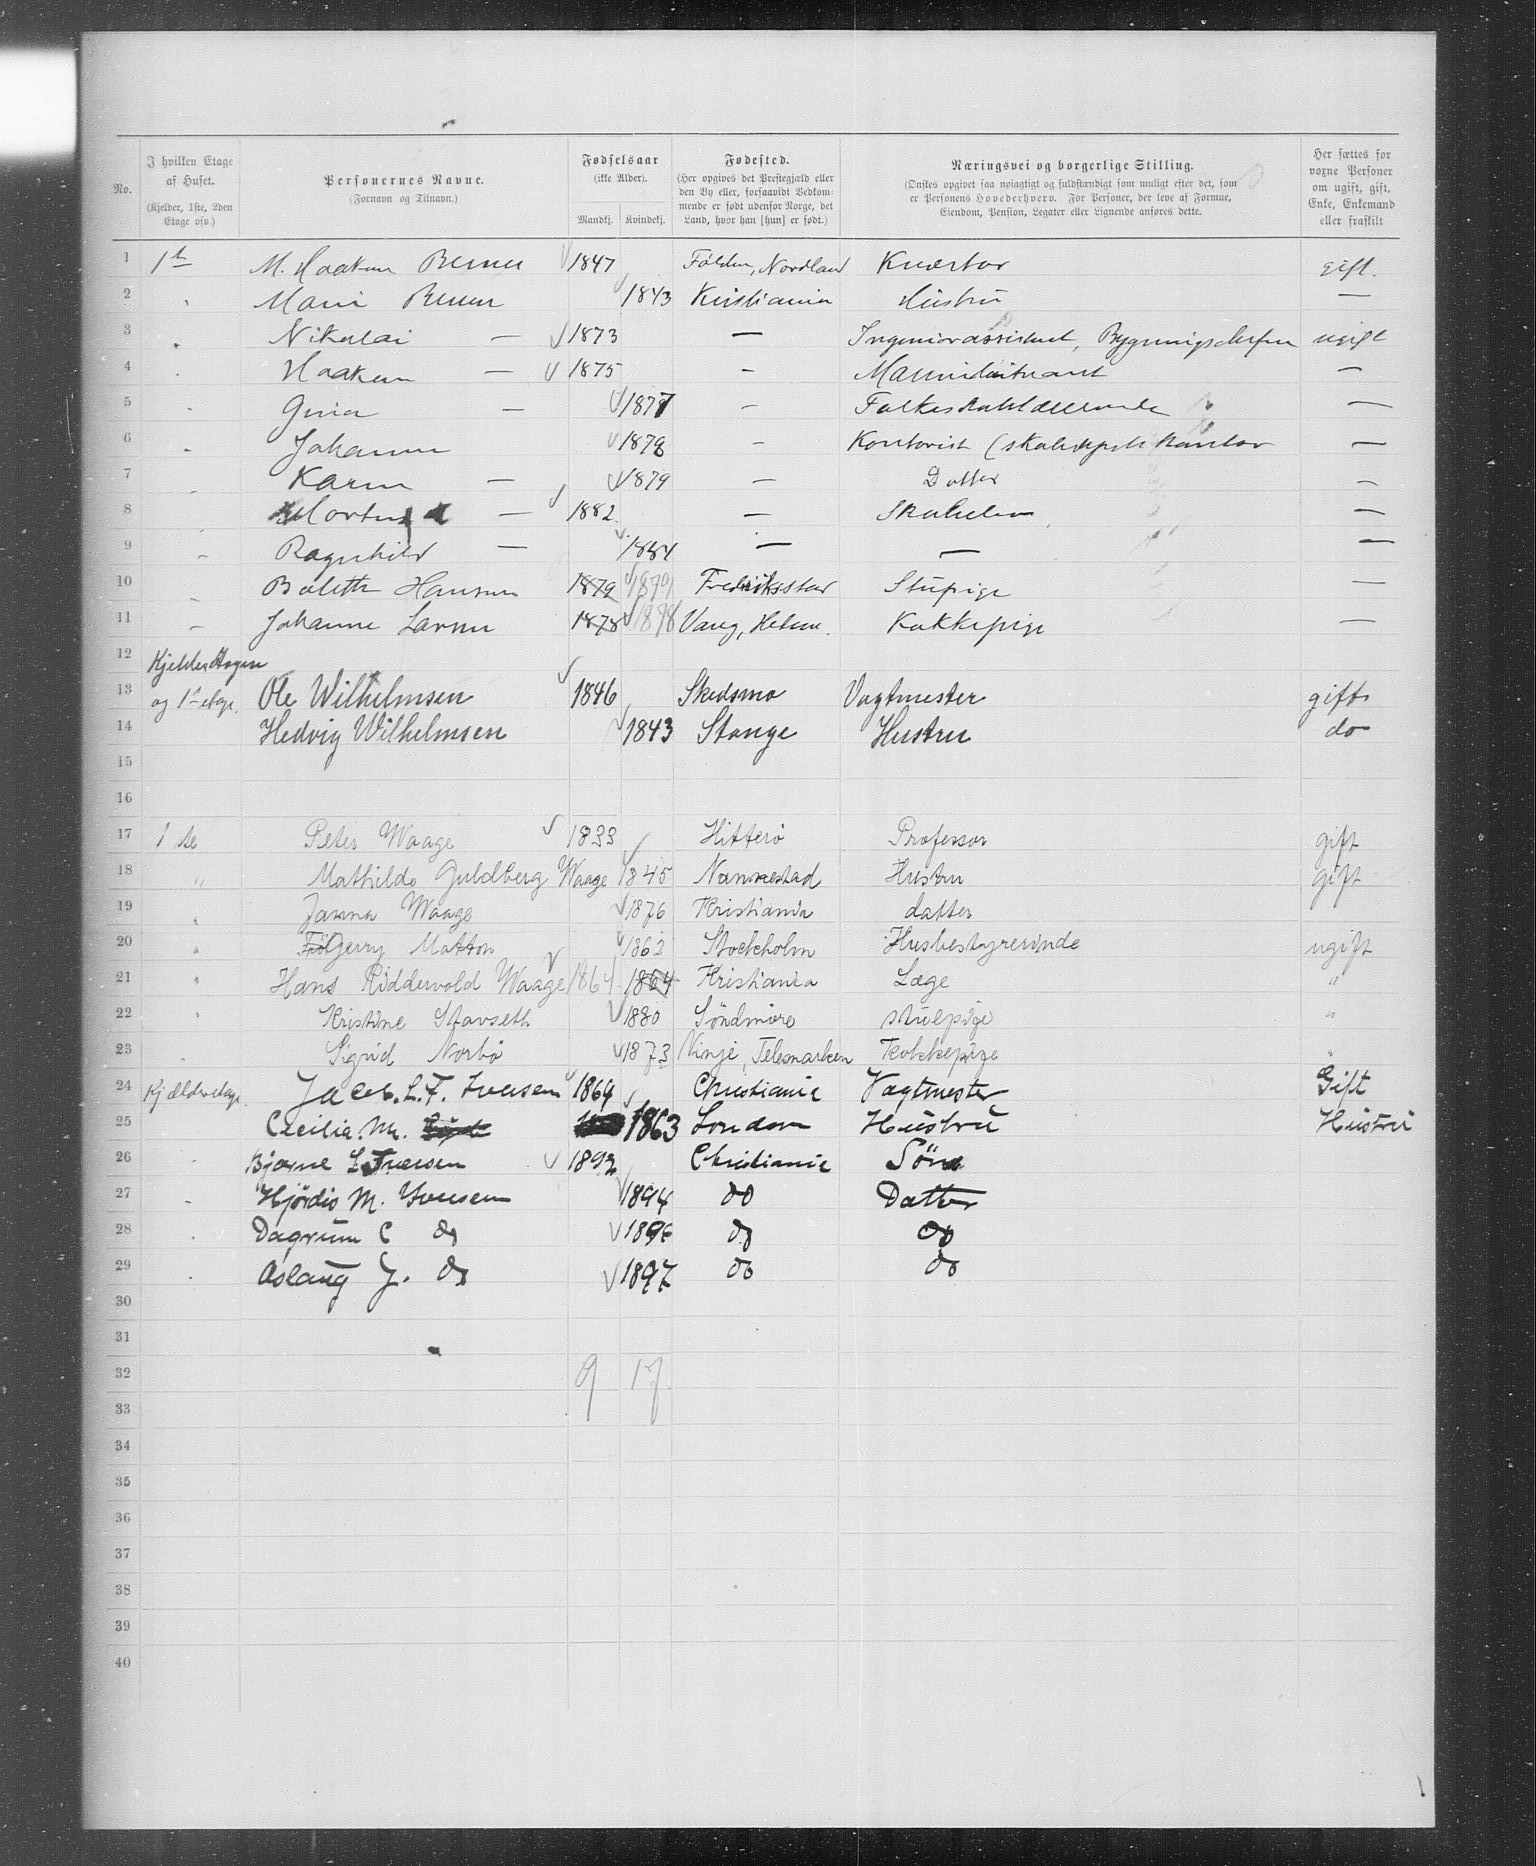 No.
I hvilken Etage af Huset.
(Kjelder, 1ste, 2den Etage osv.)
Personernes Navne.
(Fornavn og Tilnavn.)
Fødselsaar
(ikke Alder).
Mandkj. Kvindekj.
Fødested.
(Her opgives det Prestegjæld eller den By eller, forsaavidt Vedkommende er født udenfor Norge, det Land, hvor han [hun] er født.)
Næringsvei og borgerlige Stilling.
(Ønskes opgivet saa nøiagtigt og fuldstændigt som muligt efter det, som er Personens Hovederhverv. For Personer, der leve af Formue, Eiendom, Pension, Legater eller Lignende anføres dette.
Her sættes for voxne Personer om ugift, gift, Enke, Enkemand eller fraskilt
1 M. Haakon Berner 1847 Folden, Nordland Kvæstor gift.
2 " Marie Berner 1843 Kristiania Hustru —
3 " Nikolai — 1873 — Ingeniørassistent, ugift
4 " Haakon — 1875 — —
5 " Gina — 1877 — —
6 " Johanne 1878 — Kontorist —
7 " Karen — 1879 — Datter —
8 Morten — 1882 — —
9 " Ragnhild — 1884 — — —
10 " Bolette Hansen 1879 1879 Fredriksstad Stupige —
11 " Johanne Larsen 1878 1878 Vang, Hedem. Kokkepige —
12 Kjelderetagen
13 og 1ste etage. Ole Wilhelmsen 1846 Skedsmo Vagtmester gift
14 Hedvig Wilhelmsen 1843 Stange Hustru do
15
16
17 1ste Peter Waage 1833 Hitterö Professor gift
18 " Mathilde Guldberg Waage 1845 Nannestad Hustru gift
19 " Janna Waage 1876 Kristiania datter
20 " Jenny Matton 1862 Stockholm Husbestyrerinde ugift
21 " Hans Riddervold Waage 1864 1864 Kristiania Læge "
22 " Kristine Stavseth 1880 Söndmöre stuepige "
23 " Sigrid Norbö 1873 Vinje, Telemarken Kokkepige "
24 Kjælderetage. Jacob. L. F. Iversen 1869 Christiania Vagtmester Gift
25 Cecilia. M. 1863 London Hustru Hustru
26 " Bjarne L Iversen 1892 Christiania Sön
27 " Hjördis M. Iversen 1894 do Datter
28 " Dagrun C do 1896 do do
29 " Aslaug J. do 1897 do do
30
31
32 9 17
33
34
35
36
37
38
39
40